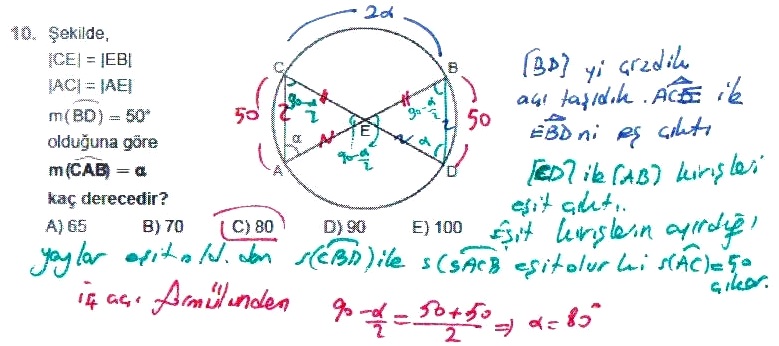 10. Şekilde,
|CE| = |EB|
|AC| = |AE|
m(BD) = 50°
olduğuna göre
m(CAB) = α
kaç derecedir?
A) 65 B) 70 C) 80 D) 90 E) 100
2α
C
B
50
2
90-α/2
90-α/2
2
50
E
α
α
90-α/2
A
D
[BD] yi çizdik
açı taşıdık. ACE ile
EBD ni eş çıktı
[CD] ile [AB] kirişleri
eşit çıktı.
Eşit kirişlerin ayırdığı
yaylar eşit old. dan s(CBD) ile s(ACB eşit olur ki s(AC)=50
çıkar.
iç açı formülünden 90-α/2 = 50+50/2 ⇒ α = 80°